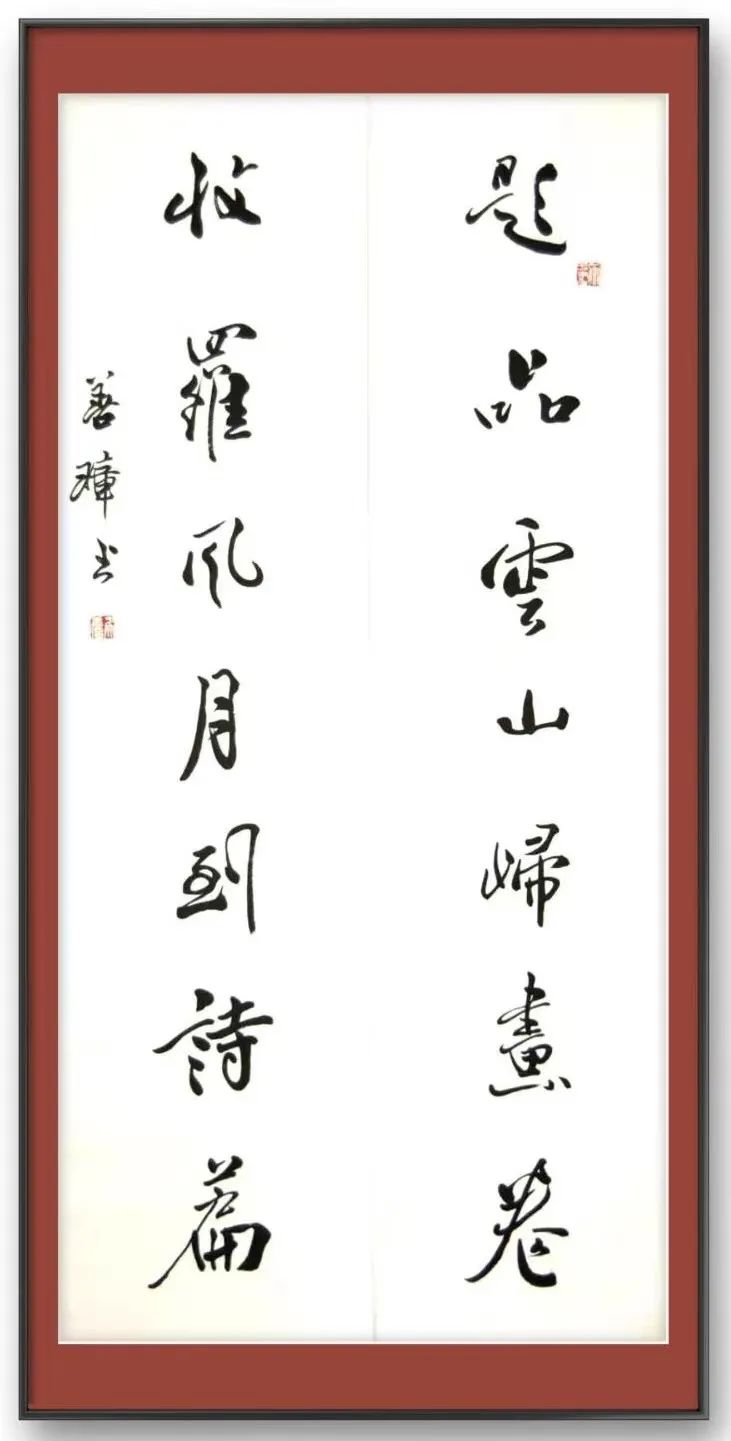 題品雲山歸畫卷
收羅風月到詩篇
善璋书